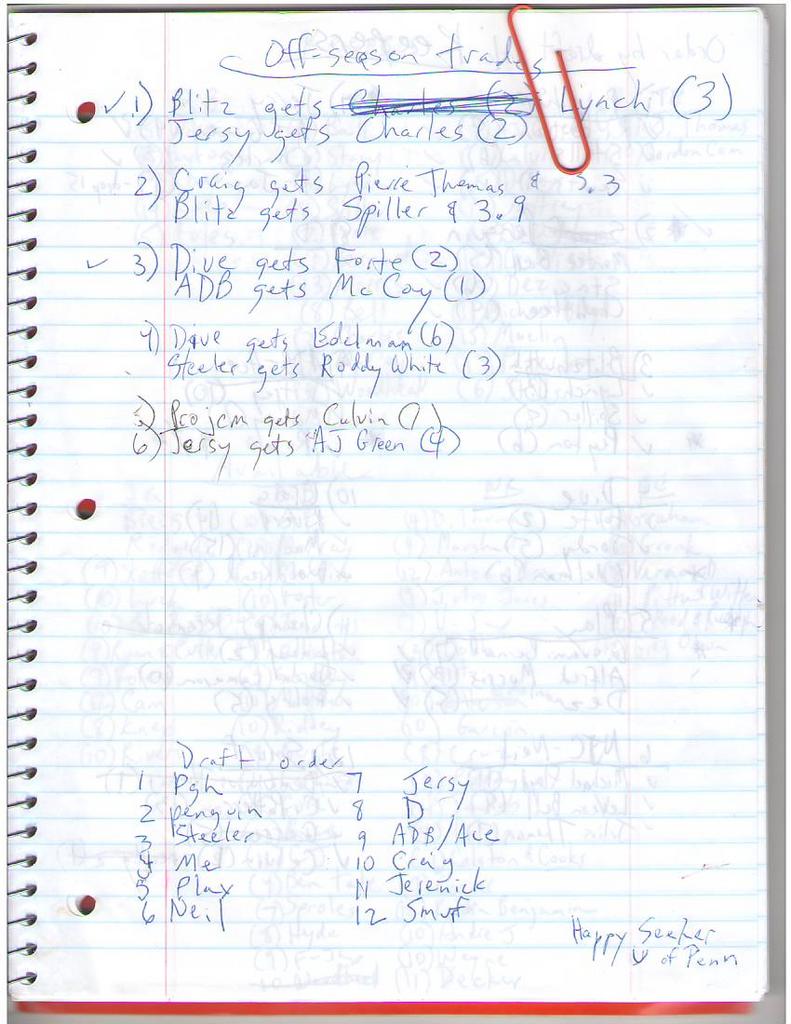 Off-season trades
✓ 1) Blitz gets Lynch (3)
Jersy gets Charles (2)
2) Craig gets Pierre Thomas & 3.3
Blitz gets Spiller & 3.9
✓ 3) Dive gets Forte (2)
ADB gets McCoy (1)
4) Dive gets Edelman (6)
Steeler gets Roddy White (3)
5) Projcm gets Calvin (1)
6) Jersy gets AJ Green (4)
Draft order
1 Pgh
2 penguin
3 Steeler
4 Me
5 Plax
6 Neil
7 Jersy
8 D
9 ADB/Ace
10 Craig
11 Jerenick
12 Smurf
Happy Seeker
of Penn